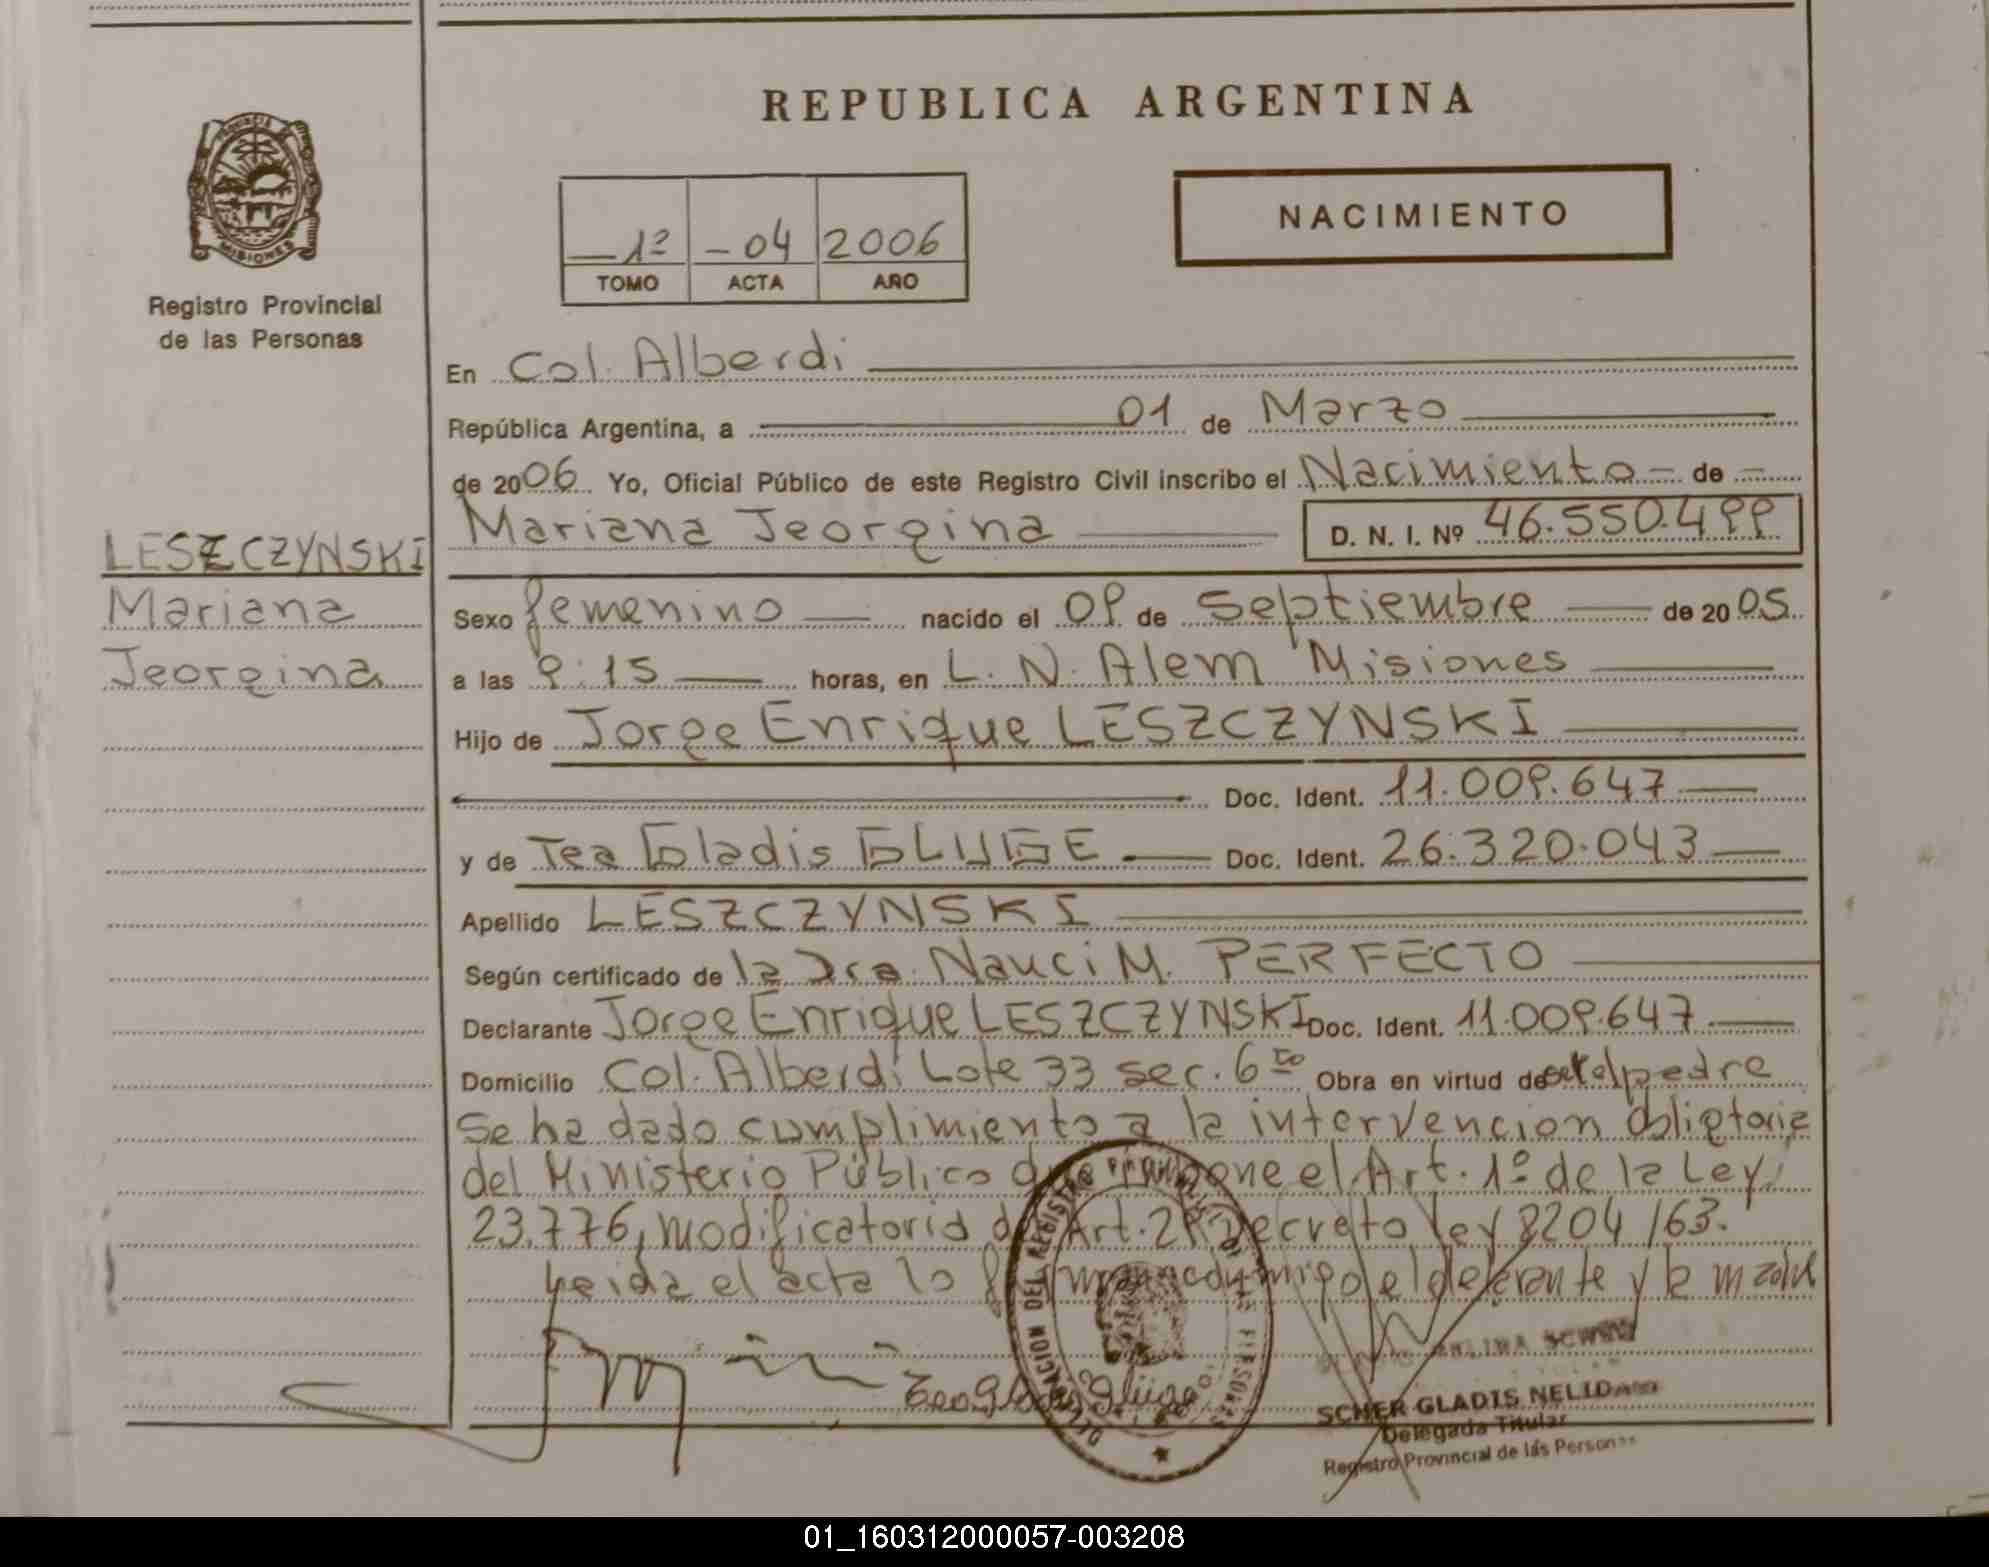 REPUBLICA ARGENTINA
PROVINCIA DE
MISIONES
Registro Provincial
de las Personas
1º -04 2006
TOMO ACTA AÑO
NACIMIENTO
En Col. Alberdi
República Argentina, a 01 de Marzo
de 2006 Yo, Oficial Público de este Registro Civil inscribo el Nacimiento de
Mariana Jeorgina D. N. I. Nº 46.550.499
LESZCZYNSKI
Mariana
Jeorgina
Sexo femenino nacido el 09 de Septiembre de 2005
a las 9:15 horas, en L. N. Alem Misiones
Hijo de Jorge Enrique LESZCZYNSKI
Doc. Ident. 11.009.647
y de Tea Gladis GLUGE Doc. Ident. 26.320.043
Apellido LESZCZYNSKI
Según certificado de la Dra. Nauci M. PERFECTO
Declarante Jorge Enrique LESZCZYNSKI Doc. Ident. 11.009.647
Domicilio Col. Alberdi Lote 33 sec. 6to Obra en virtud de ser el padre
Se ha dado cumplimiento a la intervencion obligtoria
del Ministerio Público que impone el Art. 1º de la Ley
23.776, modificatoria del Art. 29 Decreto ley 8204/63.
Leida el acta lo firman conmigo el declarante y la madre
Tea Gladis Glüge
DELEGACION DEL REGISTRO PROVINCIAL DE LAS PERSONAS
SCHER GLADIS NELIDA
Delegada Titular
Registro Provincial de las Personas
01_160312000057-003208